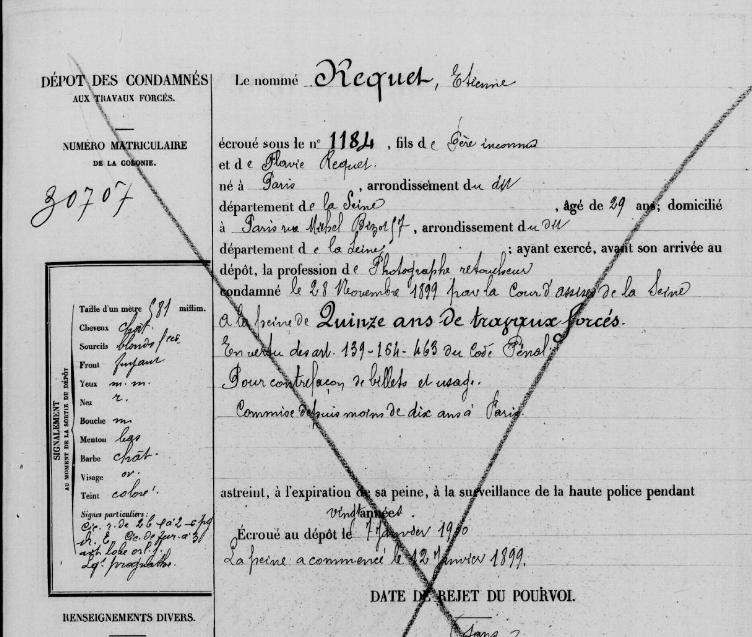 DÉPOT DES CONDAMNÉS
AUX TRAVAUX FORCÉS.
NUMÉRO MATRICULAIRE
DE LA COLONIE.
30707
SIGNALEMENT
AU MOMENT DE LA SORTIE DE DÉPÔT
Taille d'un mètre 581 millim.
Cheveux chât.
Sourcils blonds
Front fuyant
Yeux m. m.
Nez r.
Bouche m.
Menton bas
Barbe chât.
Visage ov.
Teint coloré
Signes particuliers :
Cic. r. de
Cic. de
prognathe.
RENSEIGNEMENTS DIVERS.
Le nommé Requet, Etienne
écroué sous le nº 1184, fils de Père inconnu
et de Flavie Requet.
né à Paris, arrondissement du dit
département de la Seine, âgé de 29 ans; domicilié
à Paris rue Michel Bizot 57, arrondissement du dit
département de la Seine; ayant exercé, avant son arrivée au
dépôt, la profession de Photographe retoucheur
condamné le 28 Novembre 1899 par la Cour d'assises de la Seine
à la peine de Quinze ans de travaux forcés.
En vertu des art. 139-164-463 du Code Pénal.
Pour contrefaçon de billets et usage.
Commise depuis moins de dix ans à Paris
astreint, à l'expiration de sa peine, à la surveillance de la haute police pendant
vingt années.
Écroué au dépôt le 7 Janvier 1900
La peine a commencé le 12 Janvier 1899.
DATE DE REJET DU POURVOI.
Sans